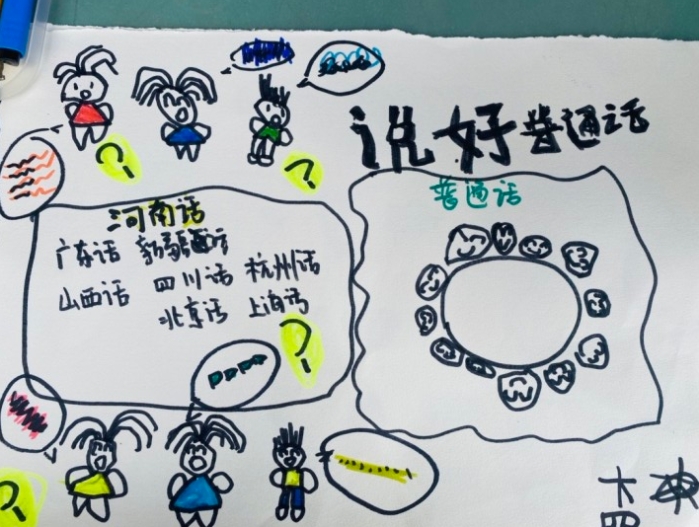 说好普通话
普通话
河南话
广东话 新疆话 杭州话
山西话 四川话 上海话
北京话
?
?
?
?